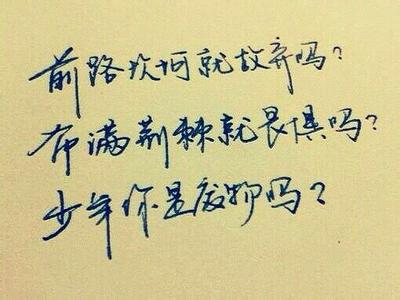 前路坎坷就放弃吗?
布满荆棘就畏惧吗?
少年你是废物吗?